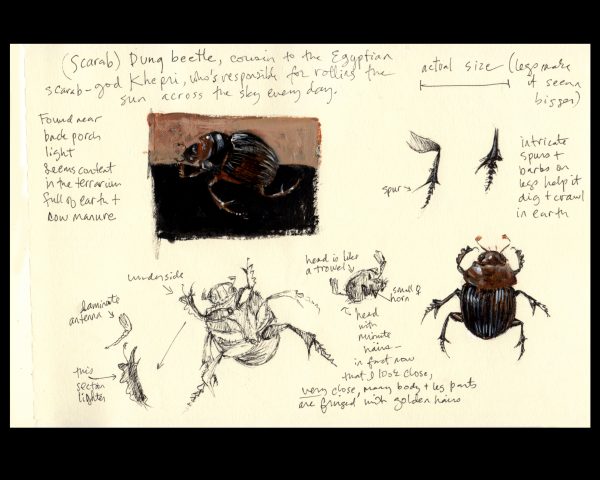 (Scarab) Dung beetle, cousin to the Egyptian
scarab-god Khepri, who's responsible for rolling the
sun across the sky every day.
actual size (legs make
it seem
bigger)
Found near
back porch
light
Seems content
in the terrarium
full of earth +
cow manure
spur
intricate
spurs +
barbs on
legs help it
dig + crawl
in earth
underside
laminate
antenna
this
section
lighter
head is like
a trowel
small
horn
head
with
minute
hairs –
in fact now
that I look close,
very close, many body + leg parts
are fringed with golden hairs